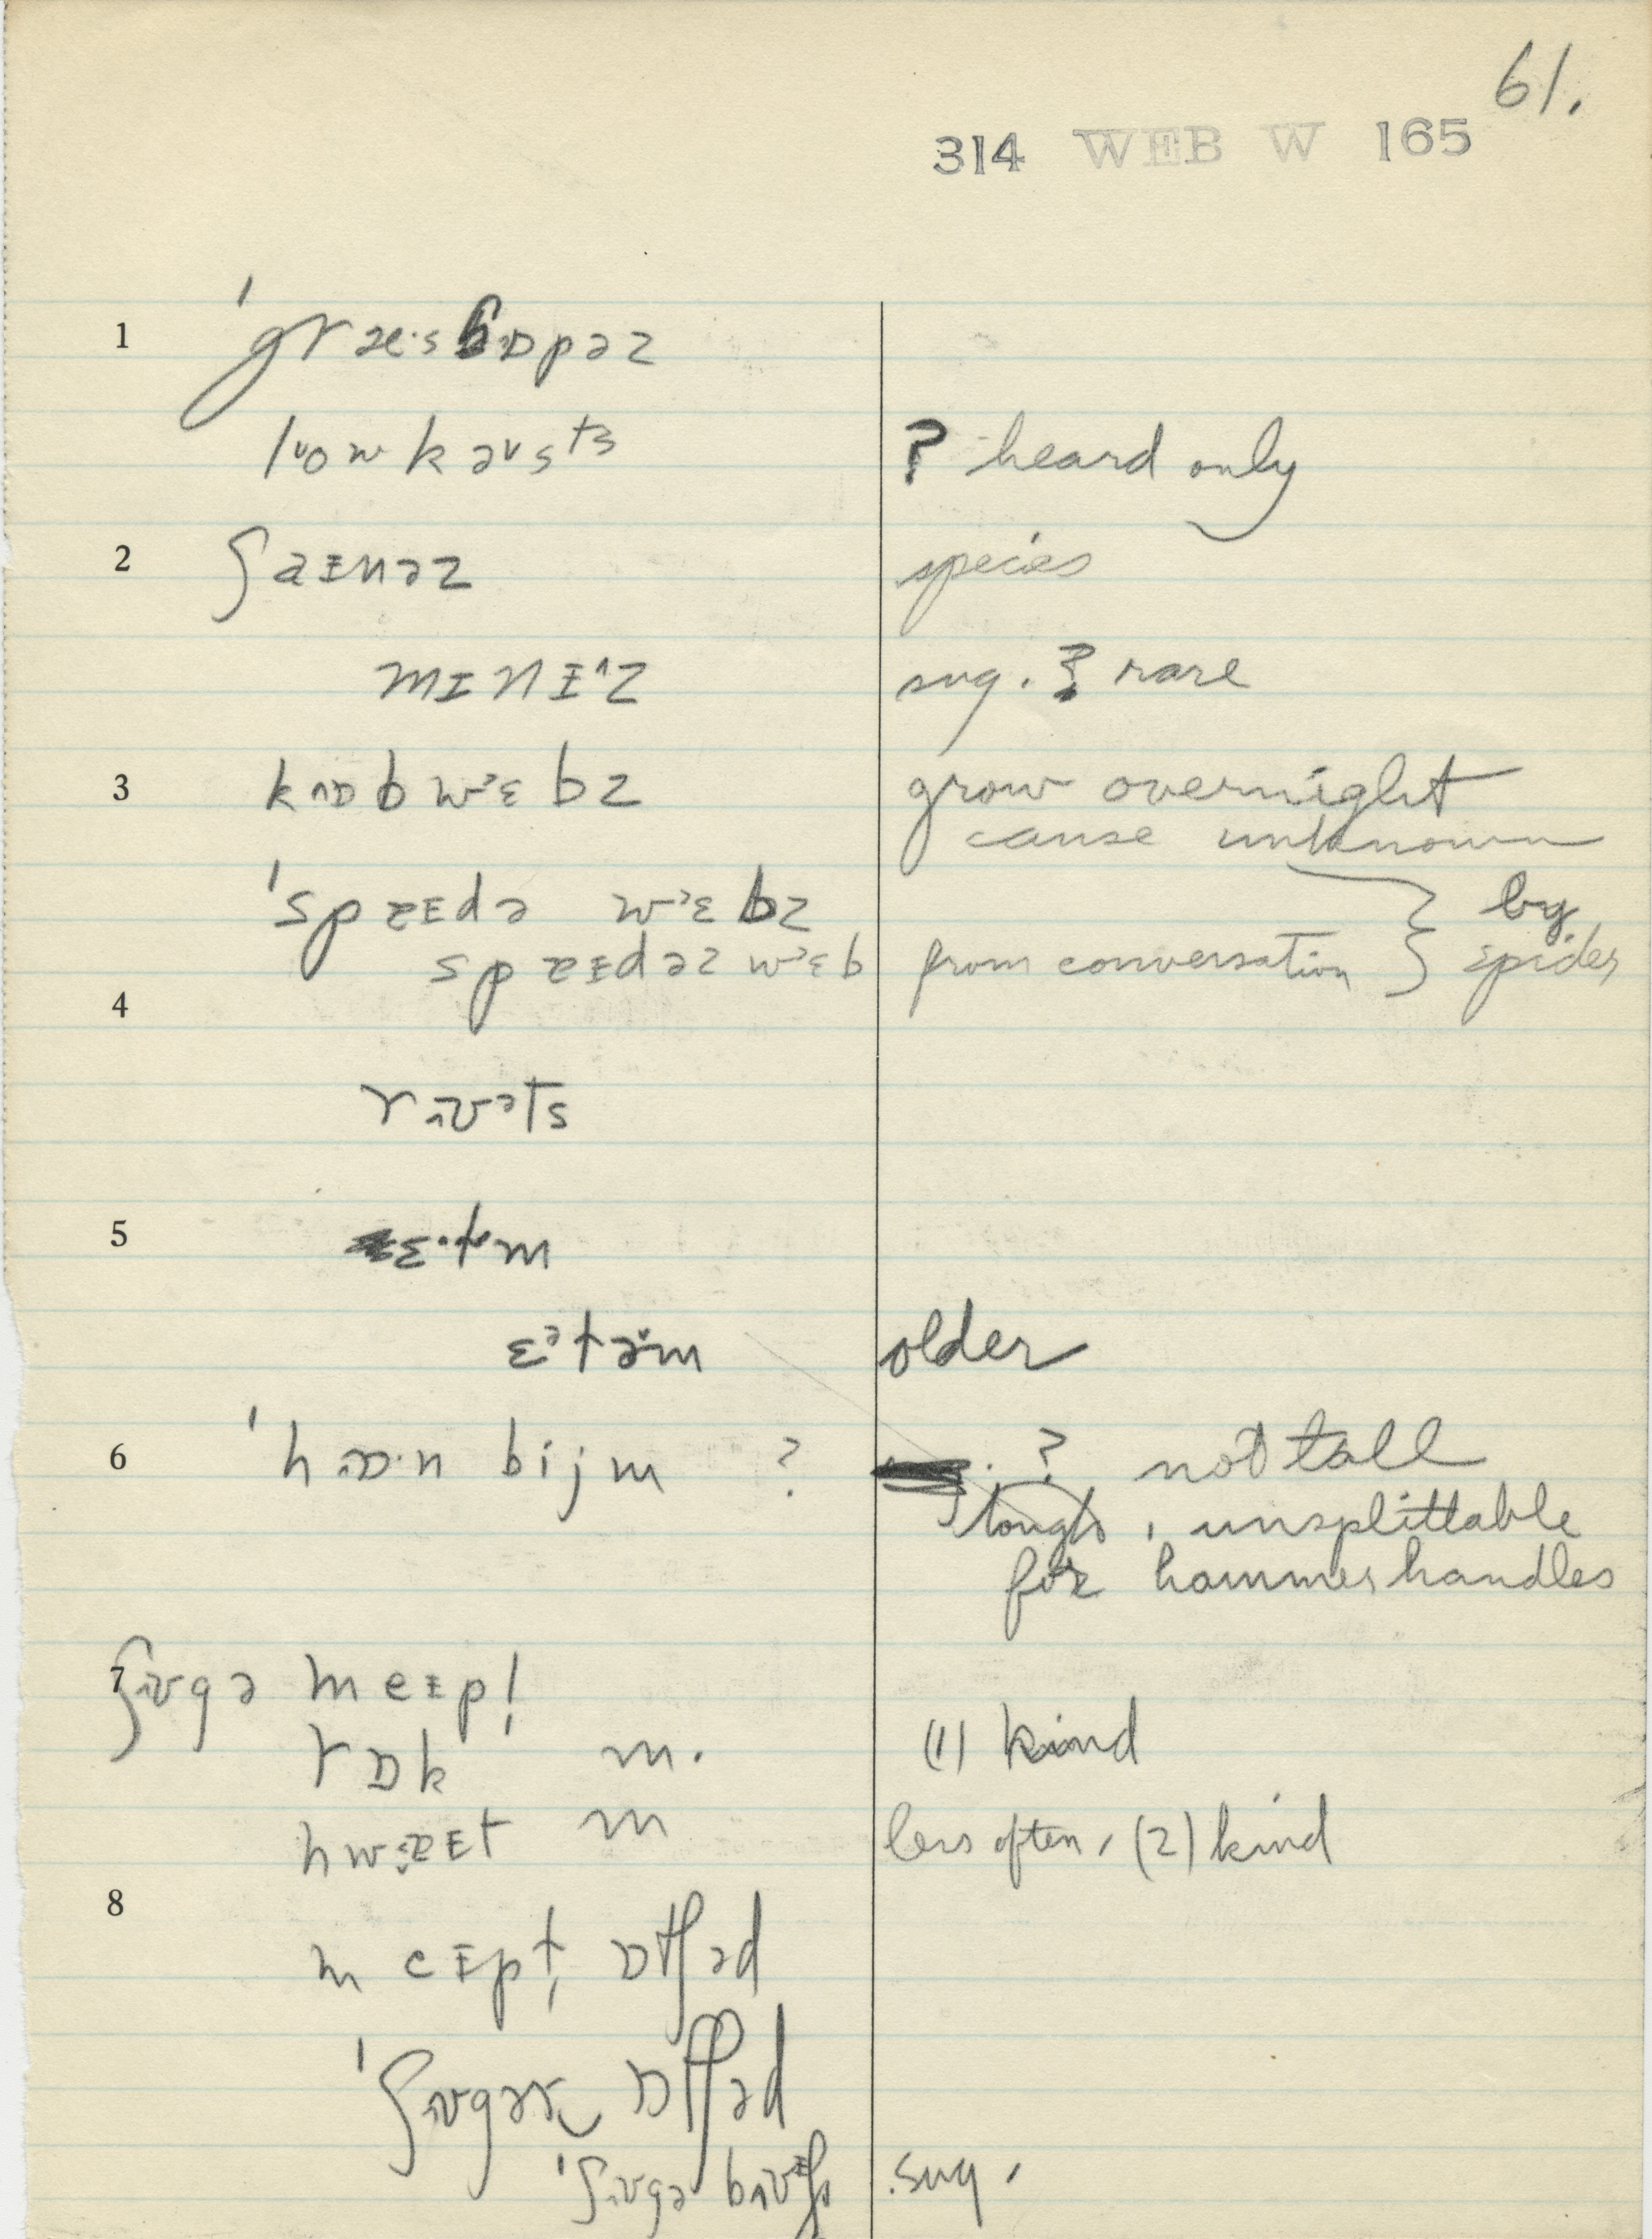 61.
314 WEB W 165
1 ˈgræ·shɒpəz
loʊkəsts ? heard only
2 ʃaɪnəz species
mɪnɪˆz sug. ? rare
3 kɒbwᵊɛbz grow overnight
cause unknown
ˈspɐɪdə wᵊɛbz } by
spɐɪdəz wᵊɛb from conversation } spider
4
rʊəts
5 ɛ·tm
ɛᵊtəm older
6 ˈhɒ·n bijm ? ? not tall
tough, unsplittable
for hammer handles
7 ʃʊgə meɪpḷ
rɒk m. (1) kind
hwɐɪt m less often, (2) kind
8
meɪpḷ ɒtʃəd
ˈʃʊgər ɒtʃəd
ˈʃʊgə bʊʃ sug.